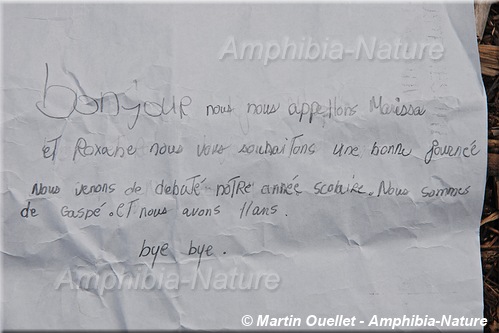 Amphibia-Nature
bonjour nous nous appettons Marissa
et Roxane nous vous souhaitons une bonne journée
Nous venons de debuté nôtre année scolaire. Nous sommes
de Gaspé. et nous avons 11ans.
bye bye.
Amphibia-Nature
© Martin Ouellet - Amphibia-Nature